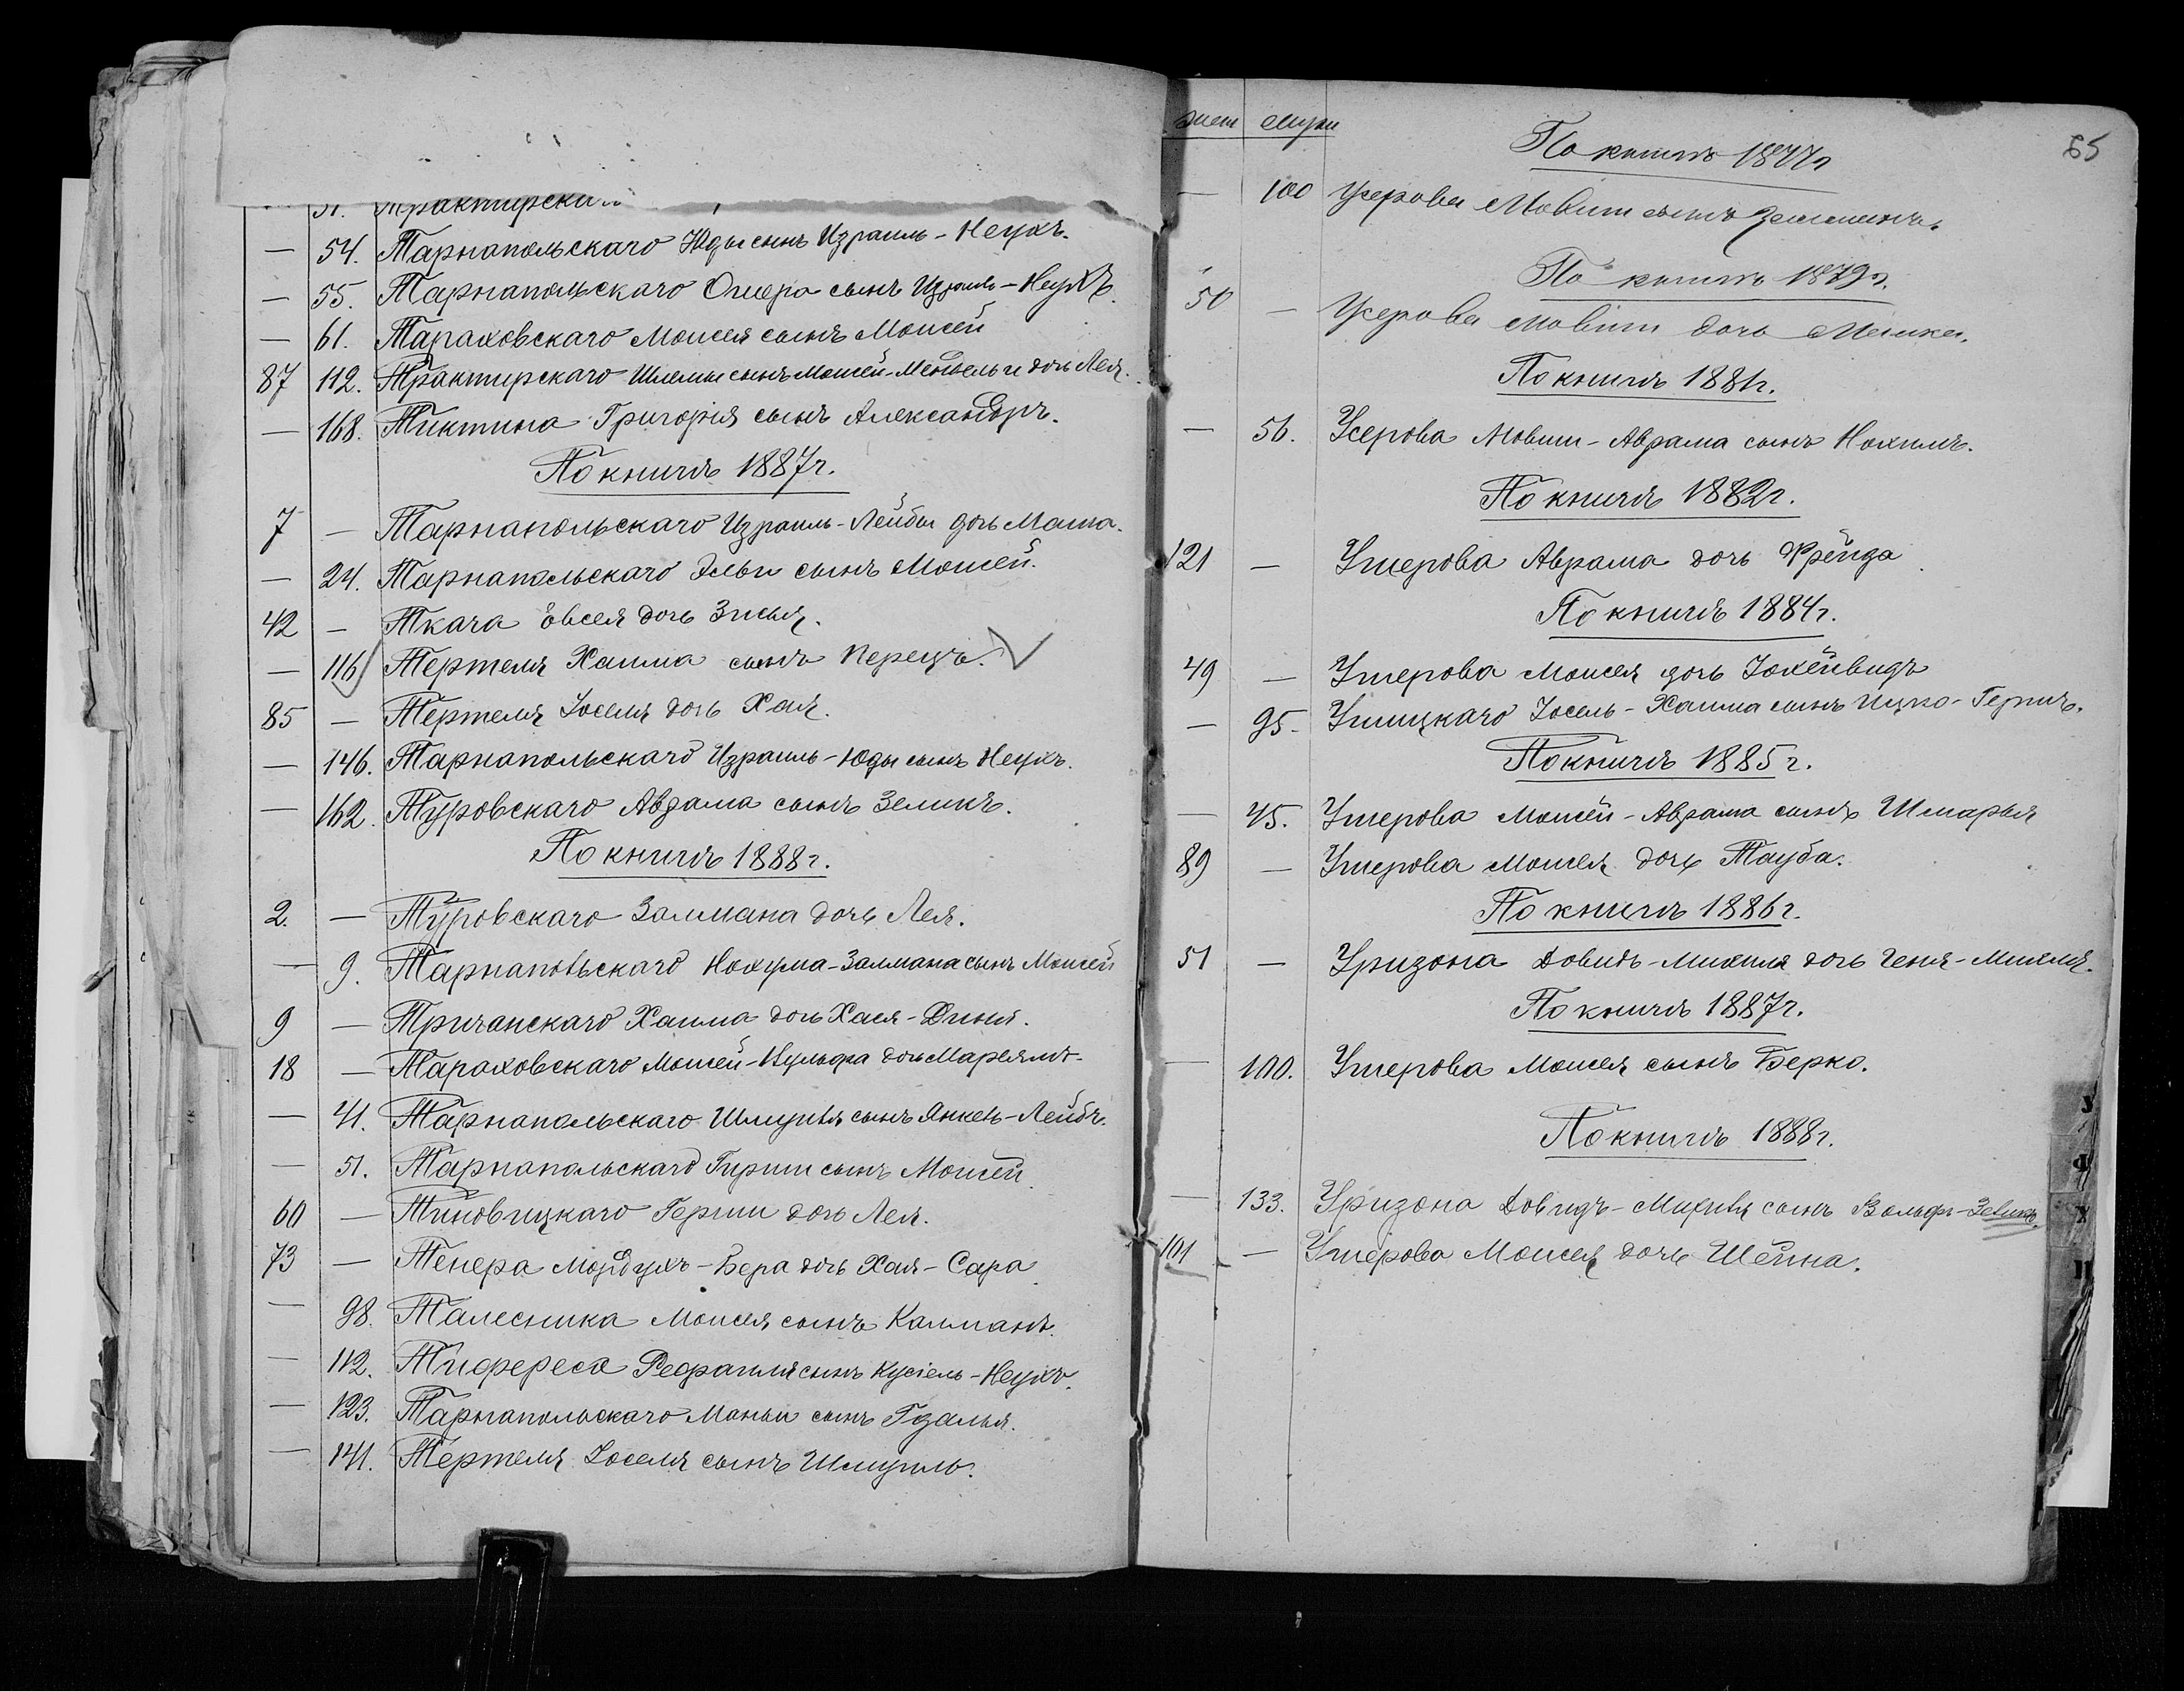 51. Трактирска
— 54. Тарнапольскаго Юды сынъ Израиль-Неухъ.
— 55. Тарнапольскаго Ошера сынъ Израиль-Неухъ.
— 61. Тараховскаго Моисея сынъ Моисей
87 112. Трактирскаго Шлемы сынъ Моисей-Мендель и дочь Лея.
— 168. Тиктина Григорія сынъ Александръ.
По книгѣ 1887г.
7 — Тарнапольскаго Израиль-Лейбы дочь Маша.
— 24. Тарнапольскаго Эльи сынъ Моисей.
42 — Ткача Овсея дочь Зисья.
— 116 Тертеля Хаима сынъ Перецъ.
85 — Тертеля Іоселя дочь Хая.
— 146. Тарнапольскаго Израиль-Юды сынъ Неухъ.
— 162. Туровскаго Аврама сынъ Зеликъ.
По книгѣ 1888г.
2. — Туровскаго Залмана дочь Лея.
— 9. Тарнапольскаго Нохума-Залмана сынъ Моисей
9 — Тричанскаго Хаима дочь Хася-Диня.
18 — Тараховскаго Моисей-Вульфа дочь Марьямъ.
— 41. Тарнапольскаго Шмуиля сынъ Янкель-Лейбъ.
— 51. Тарнапольскаго Гирши сынъ Моисей.
60 — Тиновицкаго Герши дочь Лея.
73 — Тенера Мордухъ-Бера дочь Хая-Сара.
— 98. Талесника Моисея сынъ Калманъ.
— 112. Тифереса Рефаиля сынъ Кусіель-Неухъ.
— 123. Тарнапольскаго Маньи сынъ Гдалья.
— 141. Тертеля Іоселя сынъ Шмуиль.
жен муж
65
По книгѣ 1877г
— 100 Усерова Мовши сынъ
По книгѣ 1879г.
50 — Усерова Мовши дочь
По книгѣ 1881г.
— 56. Усерова Мовши-Аврама сынъ Нохимъ.
По книгѣ 1882г.
121 — Ушерова Аврама дочь Фрейда.
По книгѣ 1884г.
49 — Ушерова Моисея дочь Іохейвидъ
— 95. Ушицкаго Іосель-Хаима сынъ Ицко-Гершъ.
По книгѣ 1885г.
— 45. Ушерова Моисей-Аврама сынъ Шмарья
89 — Ушерова Моисея дочь Тауба.
По книгѣ 1886г.
51 — Уризона Довидъ-Михиля дочь Геня-Михля.
По книгѣ 1887г.
— 100. Ушерова Моисея сынъ Берко.
По книгѣ 1888г.
— 133. Уризона Довидъ-Михиля сынъ Вольфъ-Зевикъ.
101 — Ушерова Моисея дочь Шейна.
У
Ф
Х